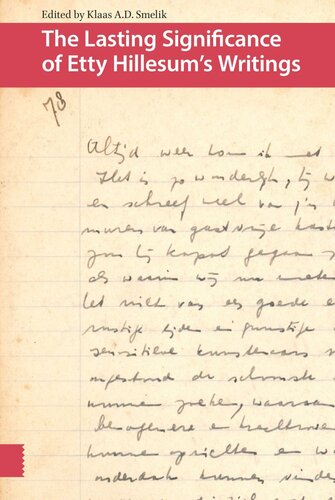 Edited by Klaas A.D. Smelik
The Lasting Significance
of Etty Hillesum's Writings
78
Altijd weer kom ik met
Het is zo wonderlijk, hij w
en schreef veel van z'n
muren van gastvrije kaste
zou hij kapot gegaan z
als waarin wij nu moeten
het niet van een goede e
rustige tijden en gunstige
sensitieve kunstenaars
ongestoord de schoonste
kunnen zoeken, waaraan
bewogener en krachtrove
kunnen oprichten en w
onderdak kunnen vinden